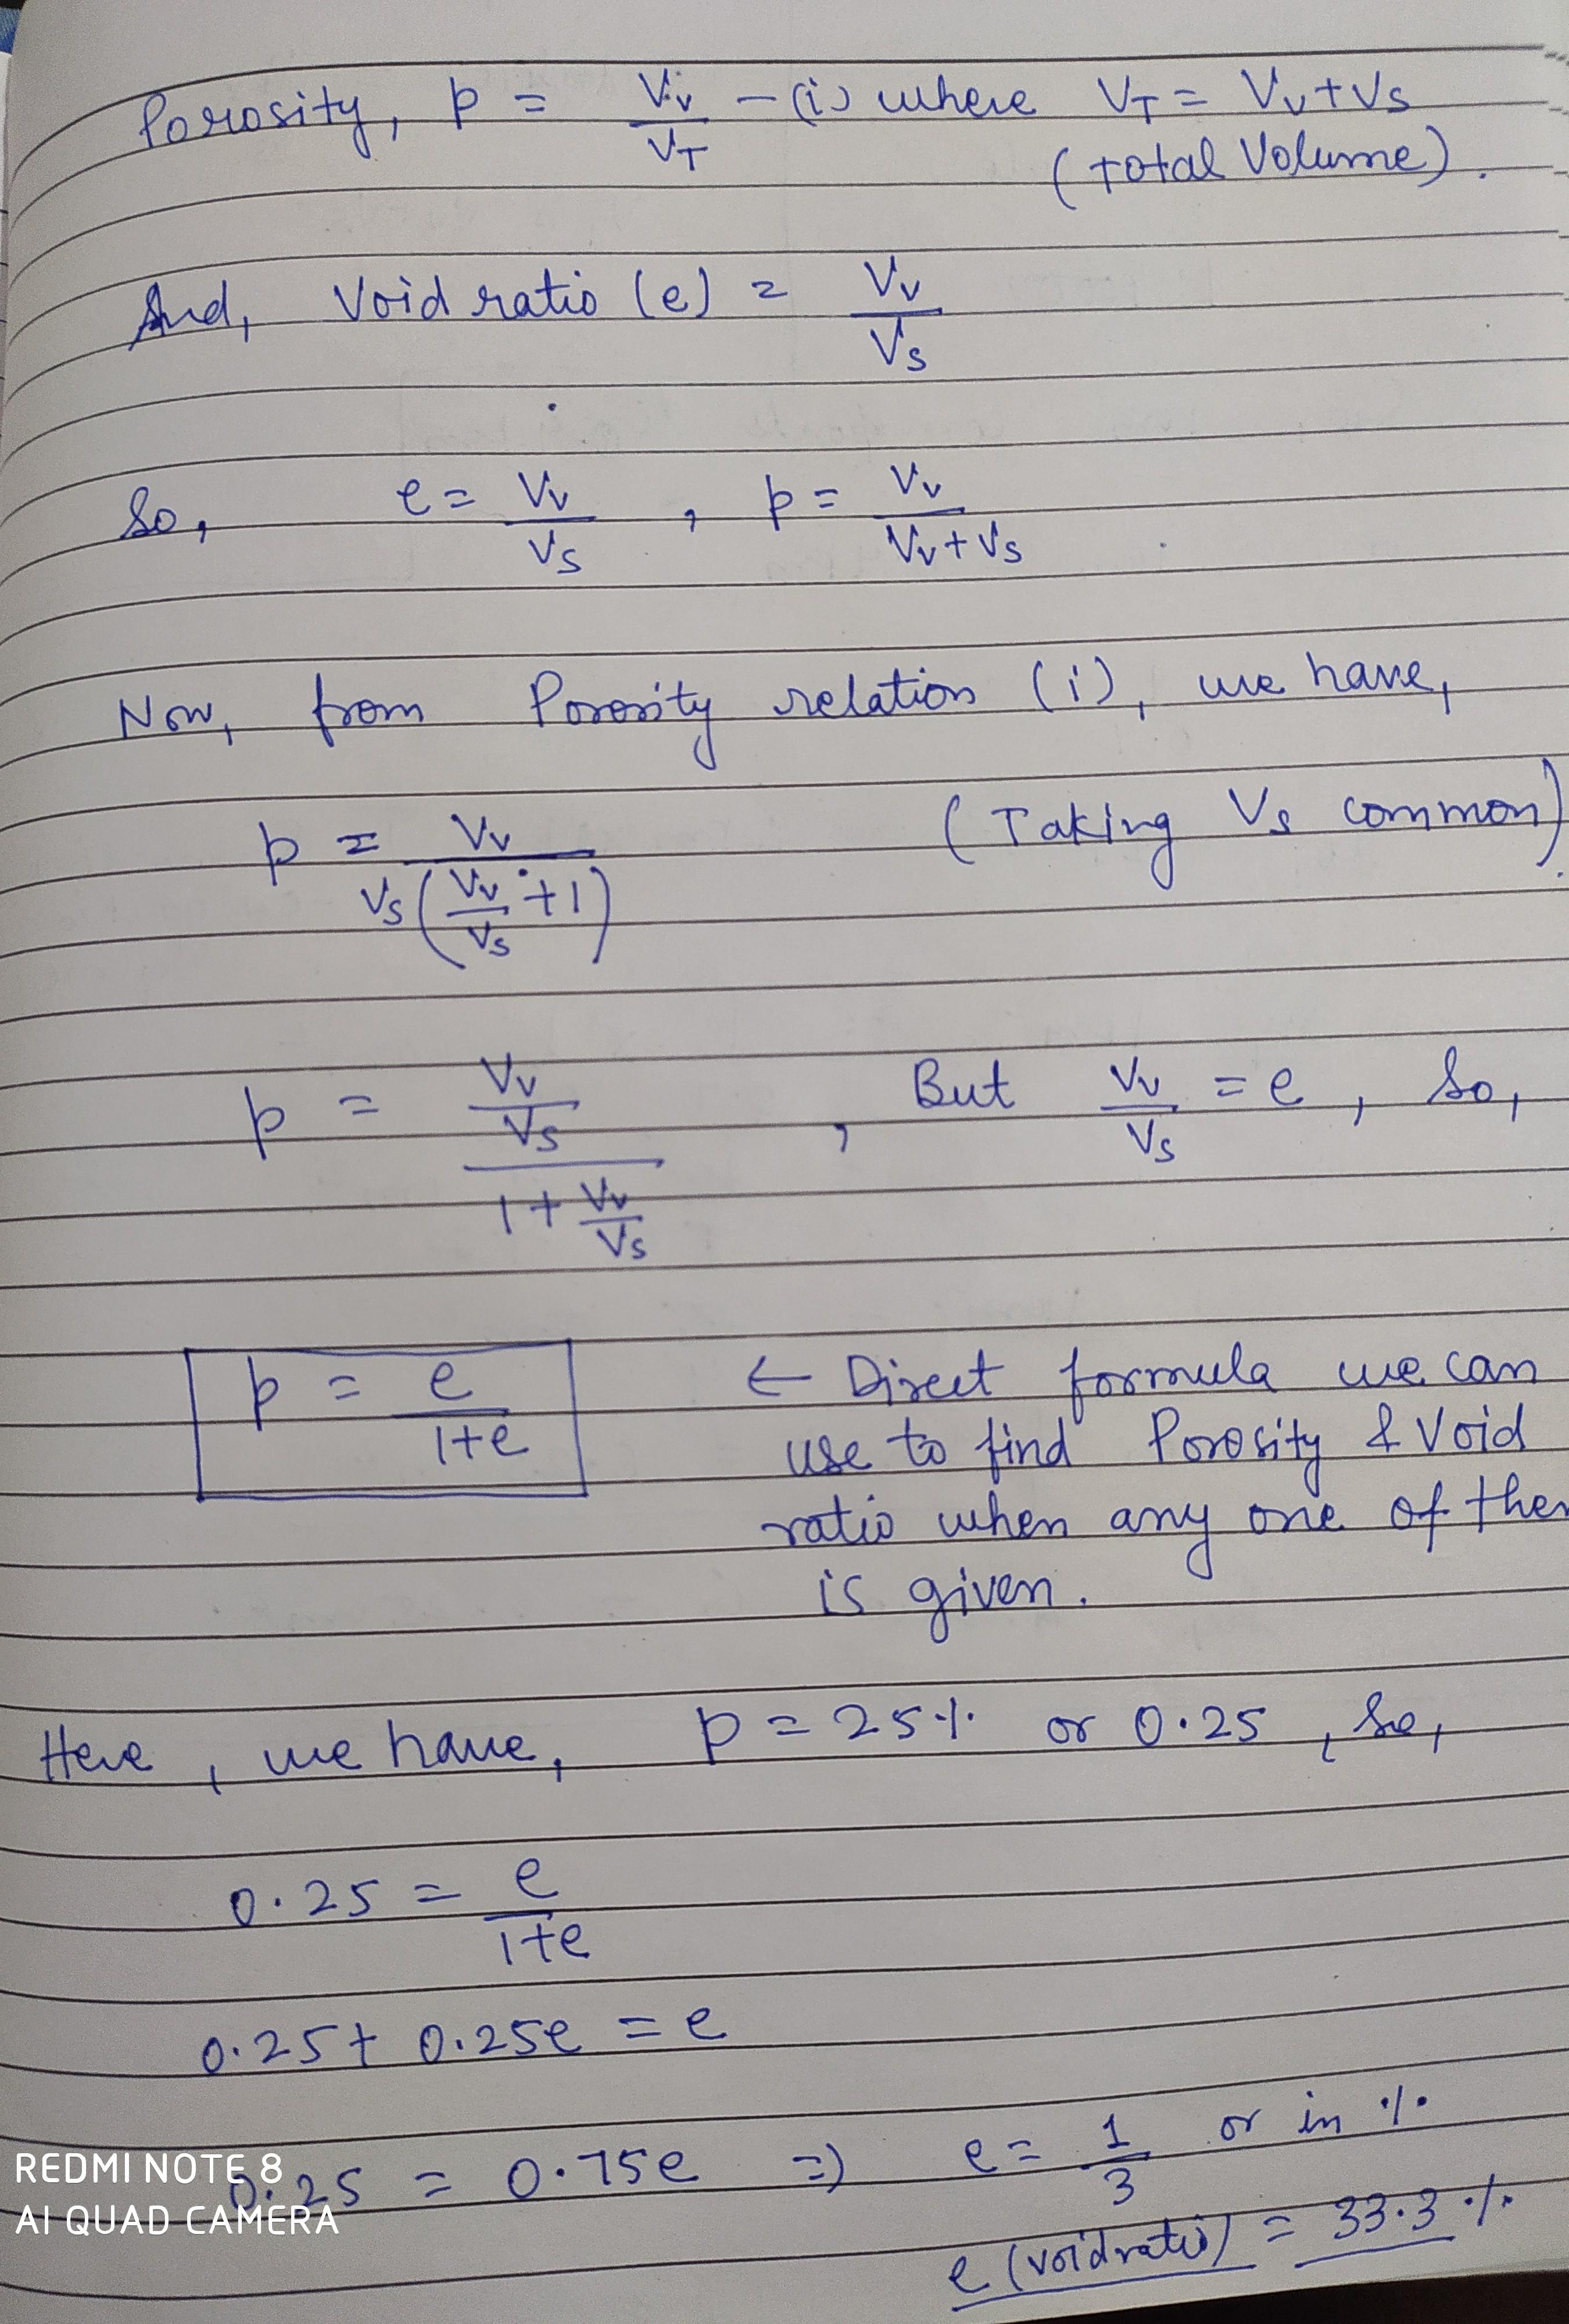 Porosity, p = Vv/VT - (i) where VT = Vv + Vs
(total Volume).
And, Void ratio (e) = Vv/Vs
So, e = Vv/Vs , p = Vv/(Vv + Vs)
Now, from Porosity relation (i), we have,
p = Vv/(Vs(Vv/Vs + 1)) (Taking Vs common)
p = (Vv/Vs)/(1 + Vv/Vs) , But Vv/Vs = e , So,
p = e/(1+e) ← Direct formula we can
use to find Porosity & Void
ratio when any one of them
is given.
Here, we have, p = 25% or 0.25 , So,
0.25 = e/(1+e)
0.25 + 0.25e = e
0.25 = 0.75e ⇒ e = 1/3 or in %
e (void ratio) = 33.3 %
REDMI NOTE 8
AI QUAD CAMERA